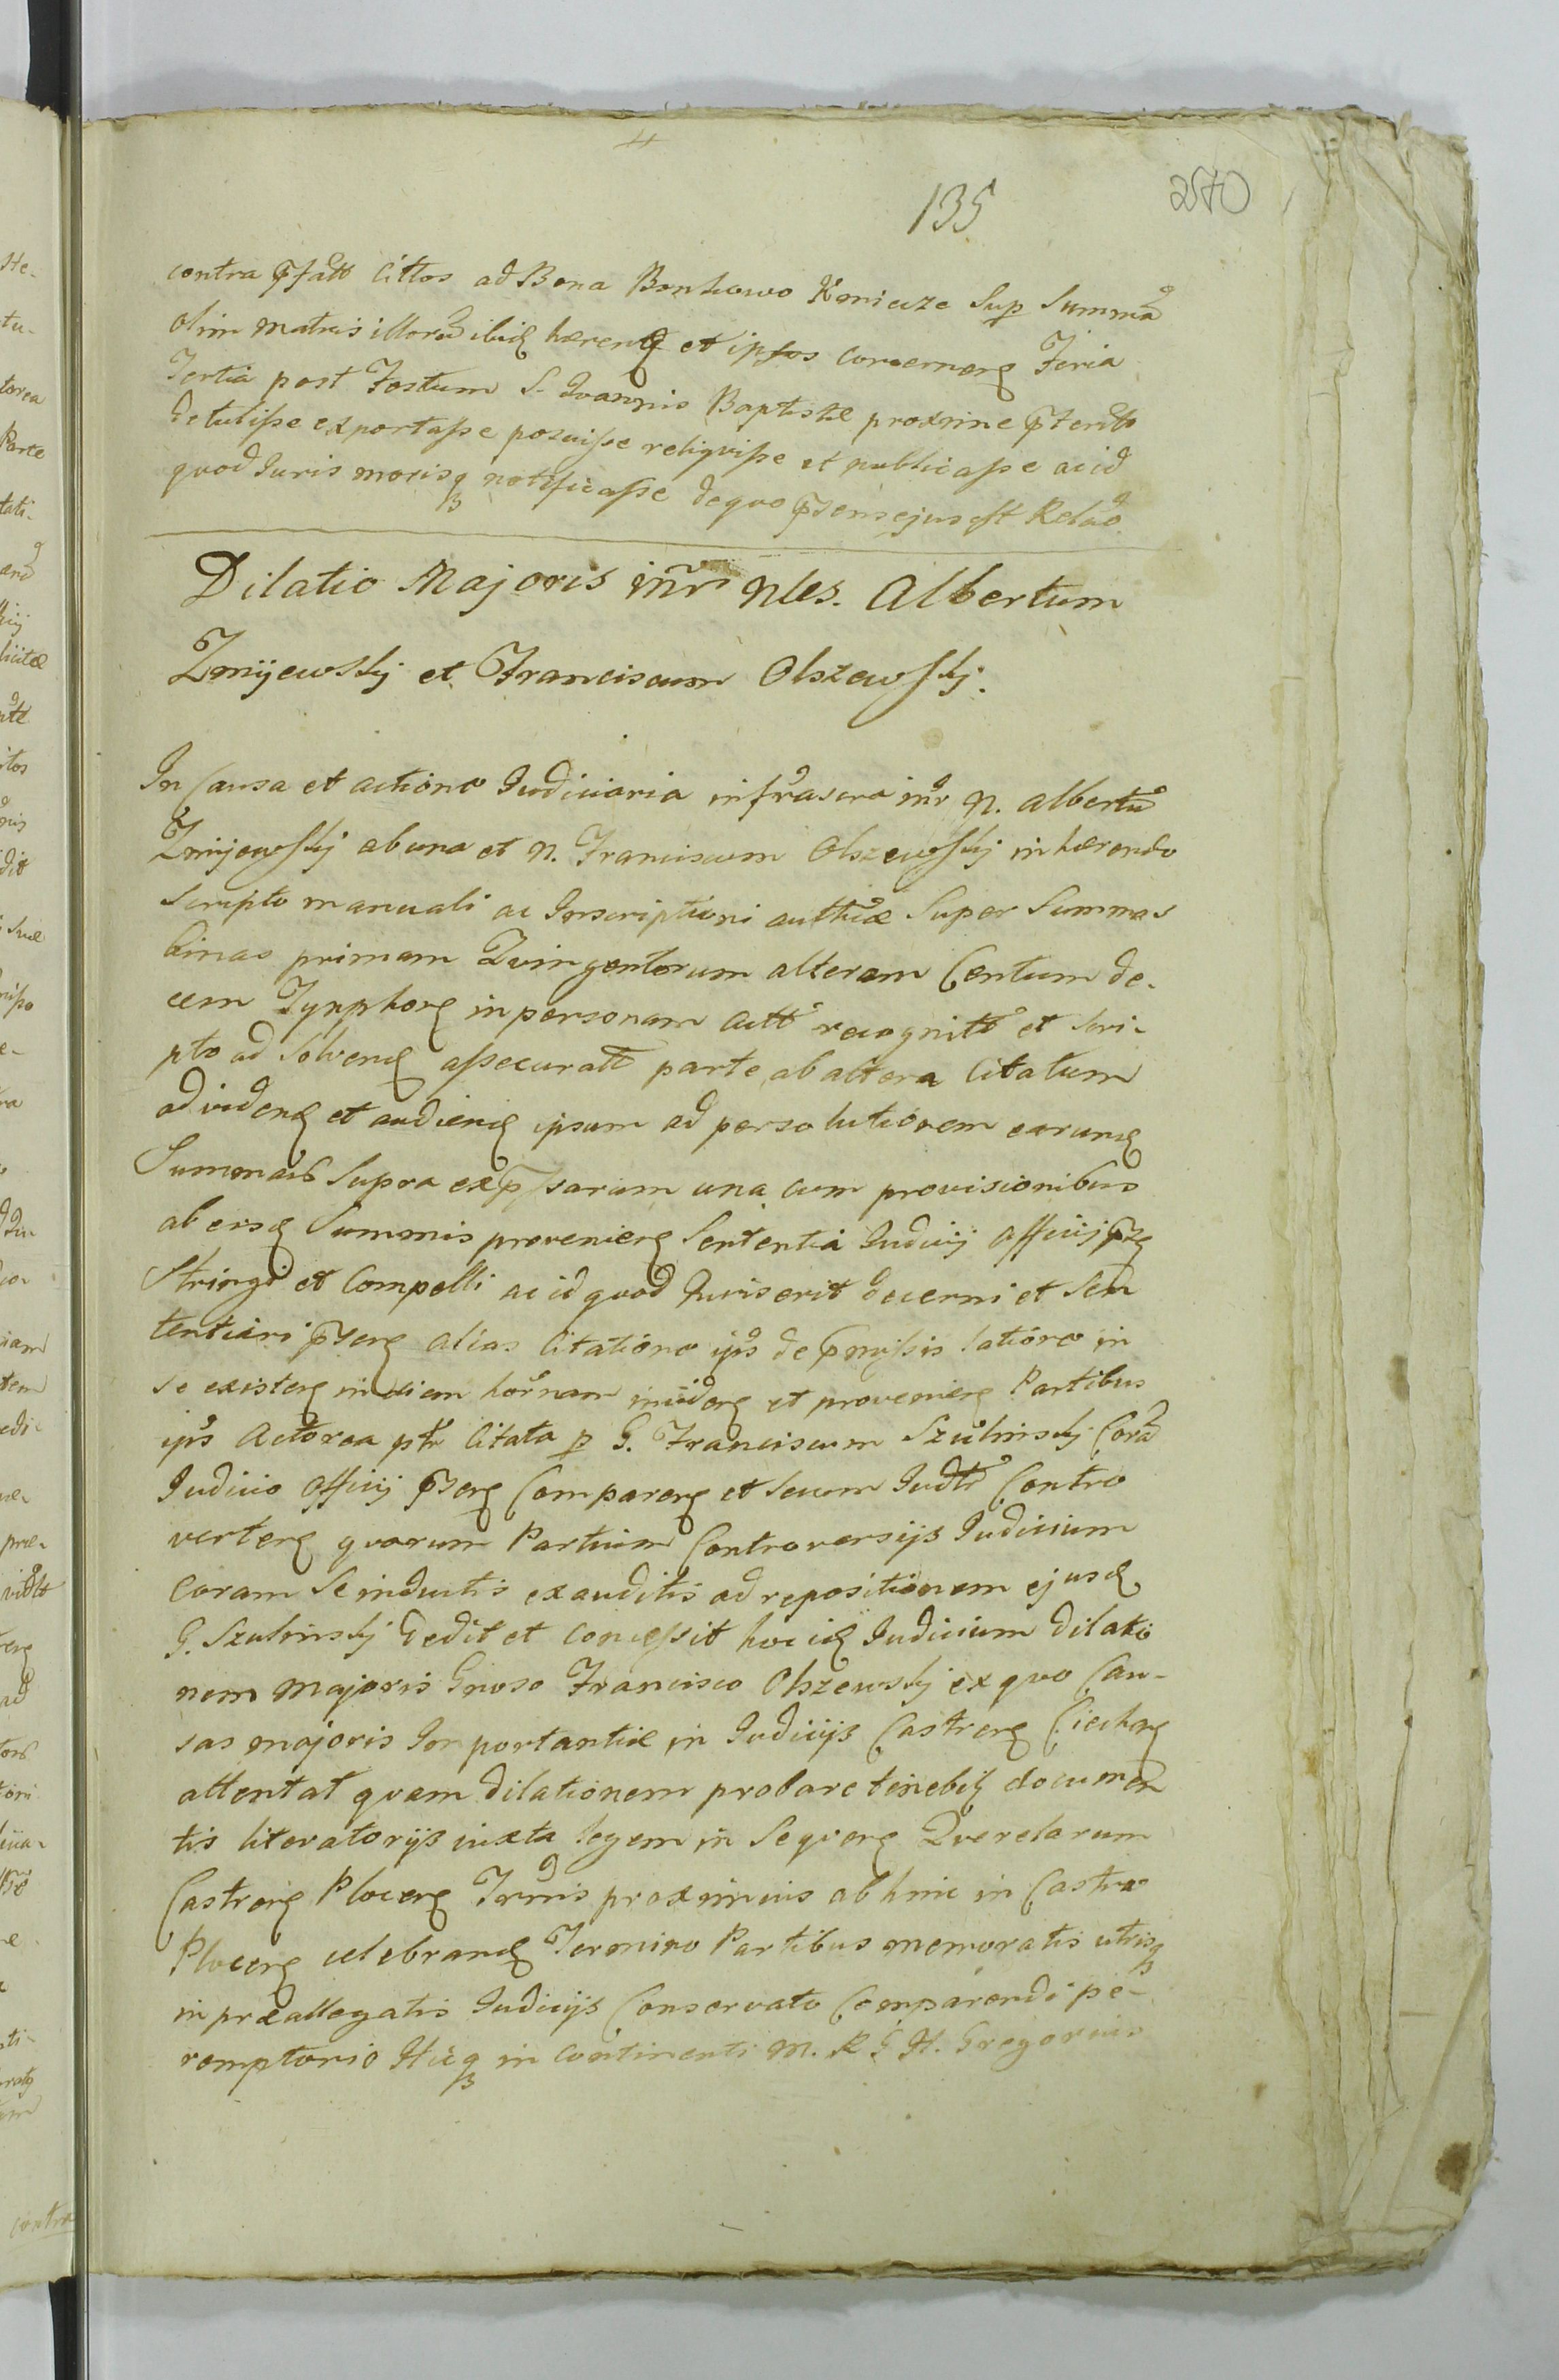 135
270
contra pfatt Cittos ad Bona Bonkowo Koniecze Sup Summa
olim Matris illorũ ibid hæren et ipsos concernen Feria
Tertia post Festum S. Joannis Baptistæ proxime pterito
detulisse exportasse posuisse reliquisse et publicasse ac id
quod Juris morisq notificasse de quo psens ejus est Relao.
Dilatio Majoris inr Nles. Albertum
Zmijewskij et Franciscum Olszewskij.
In Causa et actione Judiciaria infrascra inr N. Albertũ
Zmijewskij ab una et N. Franciscum Olszewskij inhærendo
Scripto manuali ac Inscriptioni authcæ Super Summas
binas primam Quingentorum alteram Centum de-
cem Tynphon in personam Actt recognitt et Scri-
pto ad Solvend assecuratt parte ab altera Citatum
ad videnđ et audiend ipsum ad persolutionem earund
Summarũ Supra expssarum una cum provisionibus
ab eisd Summis provenien Sententia Judicij Officij psen
Stringi et Compelli ac id quod Juris erit decerni et Sen
tentiari psen alias Citatione ips de pmissis latiore in
se existen in diem hornam inciden et provenien Partibus
ips Actorea ptr Citata p G. Franciscum Szulinskij Corã
Judicio Officij psen Comparen et Secum Judtr Contro
verten quorum Partium Controversijs Judicium
coram Se inductis exauditis ad repositionem ejusd
G. Szulinskij dedit et concessit hoc id Judicium dilatio
nem Majoris Gnoso Francisco Olszewskij ex quo Cau-
sas majoris Importantiæ in Judicijs Castren Ciechan
attentat quam dilationem probare tenebit documen
tis literatorijs iuxta legem in Sequen Querelarum
Castren Plocen Trnis proximius ab hinc in Castro
Plocen celebrand Termino Partibus memoratis utrisq
in præallegatis Judicijs Conservato Comparendi pe-
remptorio Hicq in continenti M. R G H. Gregorius